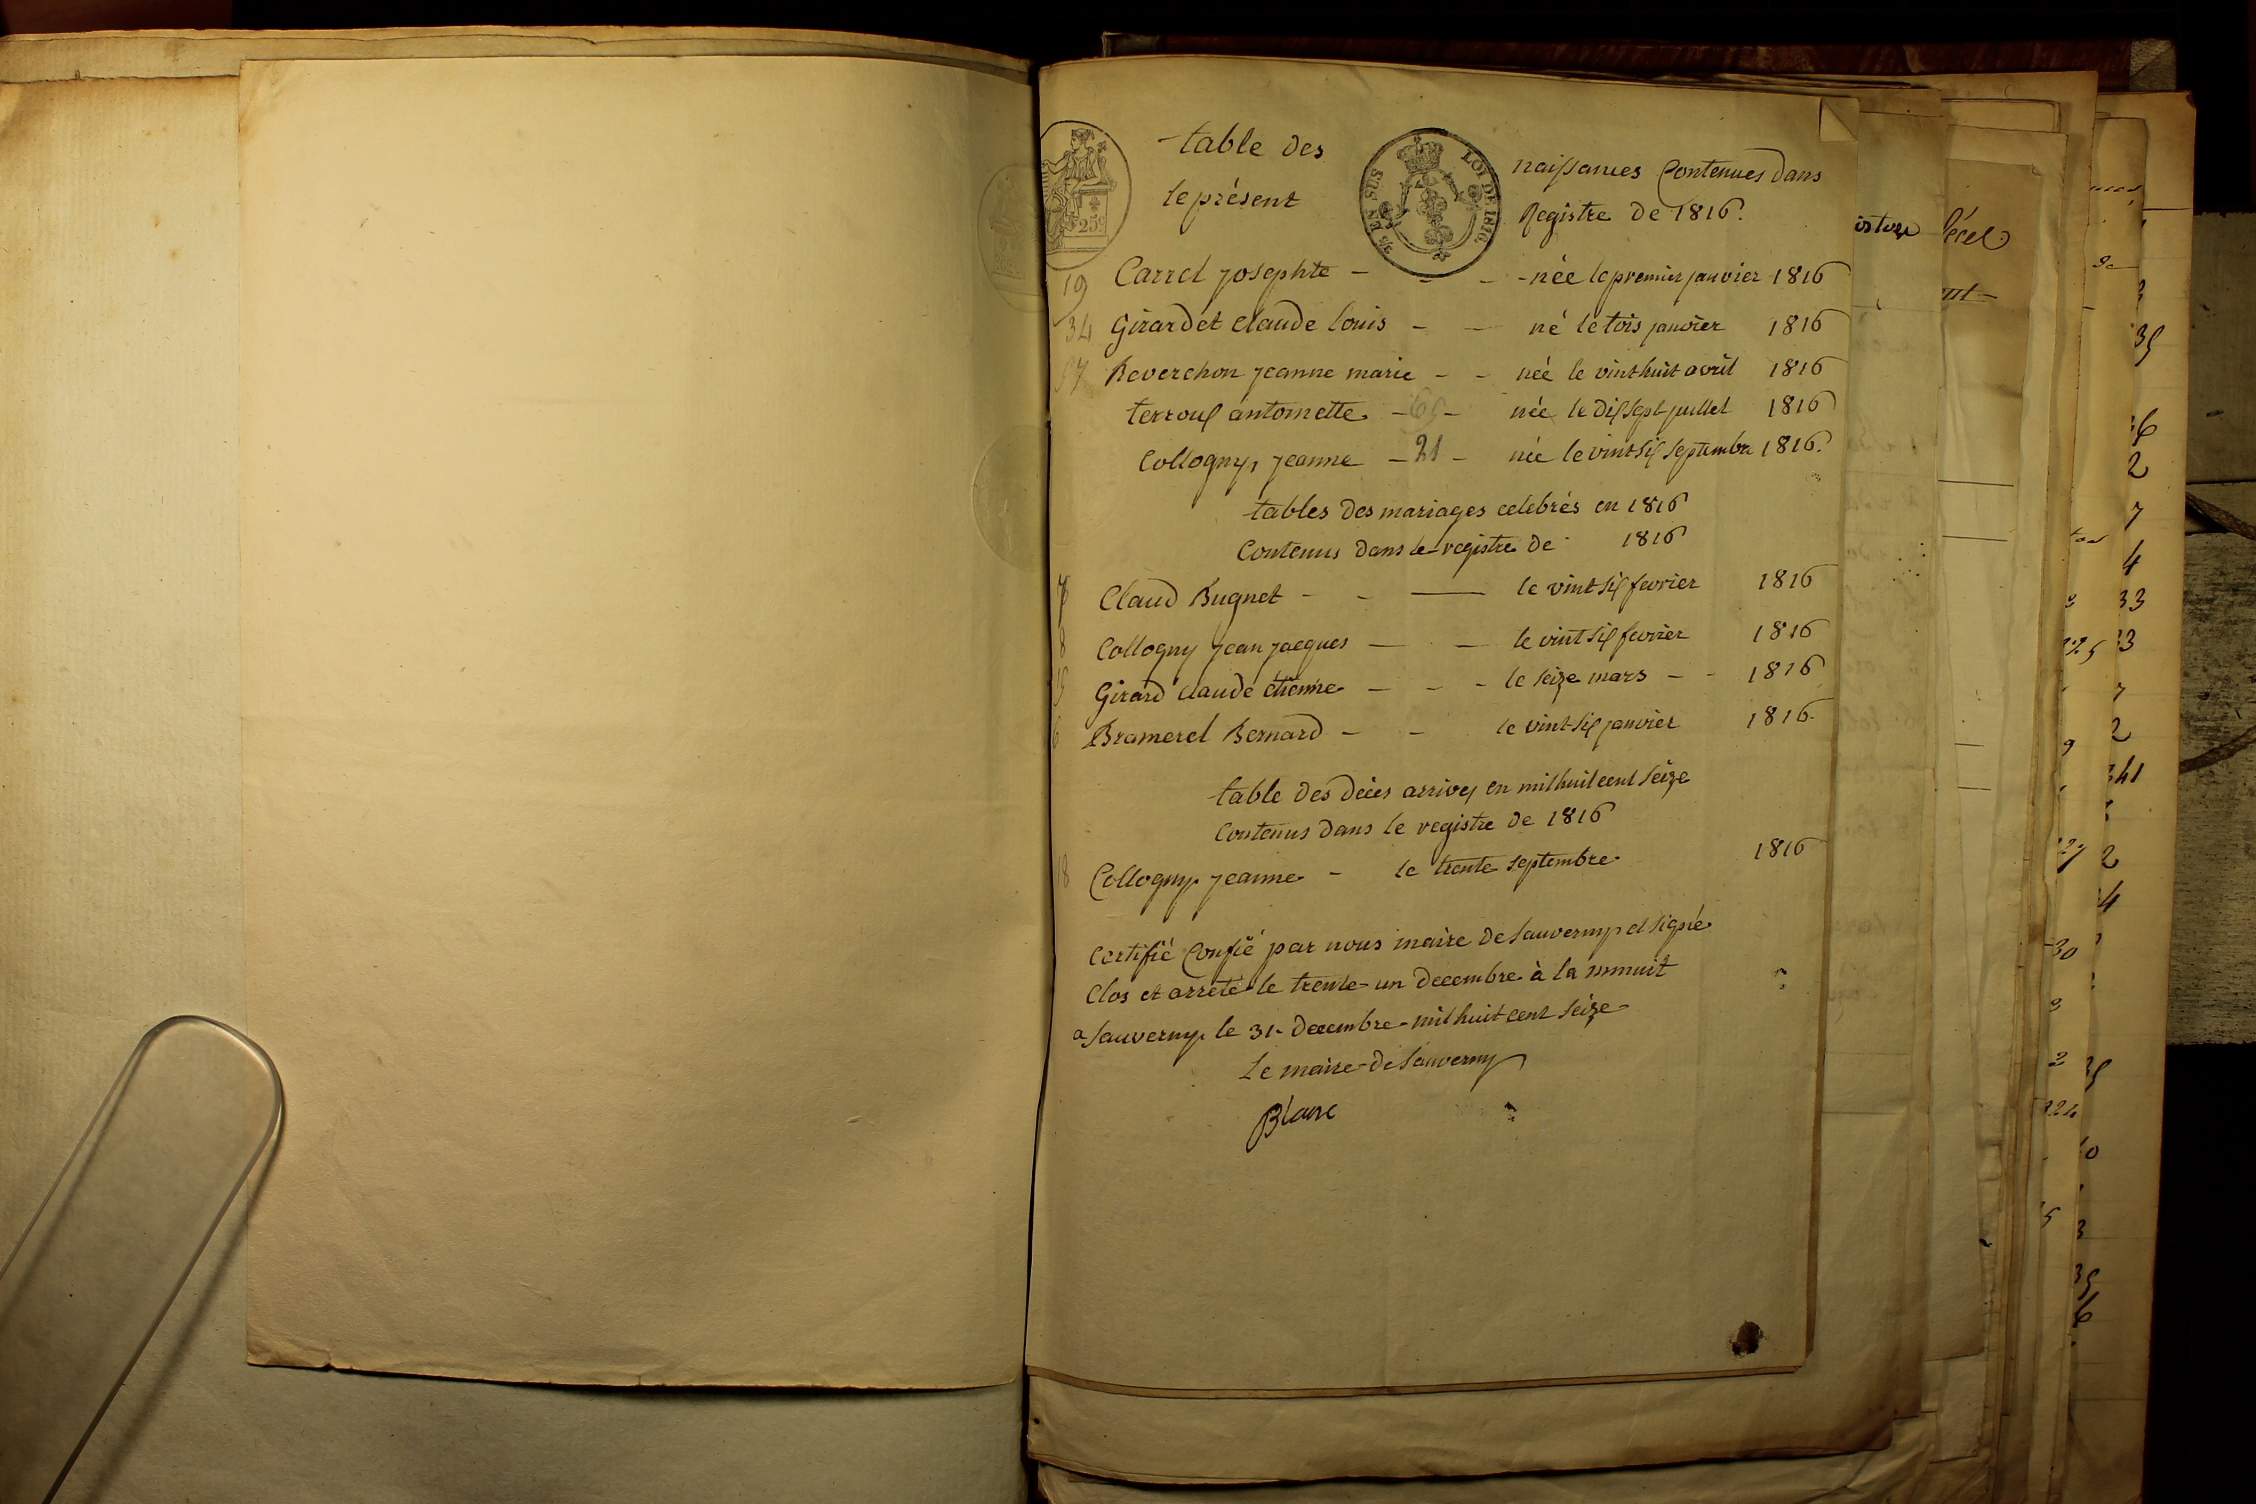 table des naissances Contenues dans
le présent Registre de 1816.
25c
5/5 EN SUS LOI DE 1816.
19 Carrel josephte - - - - née le premier janvier 1816
34 Girardet claude louis - - né le tois janvier 1816
57 Reverchon jeanne marie - - née le vint huit avril 1816
terroux antoinette - 65 - née le dix sept juillet 1816
Collogny, jeanne - 21 - née le vint six septembre 1816.
tables des mariages celebrés en 1816
Contenus dans le registre de 1816
7 Claud Bugnet - - — le vint six fevrier 1816
8 Collogny jean jacques — — le vint six fevrier 1816
5 Girard claude etienne - - - le seize mars - - 1816
6 Bramerel Bernard - - le vint six janvier 1816.
table des déces arrivez en mil huit cent seize
Contenus dans le registre de 1816
18 Collogny jeanne - le trente septembre 1816
Certifié Confié par nous maire de Sauverny et signé
Clos et arreté le trente-un decembre à la minuit
a Sauverny le 31 decembre mil huit cent seize
Le maire de Sauverny
Blanc